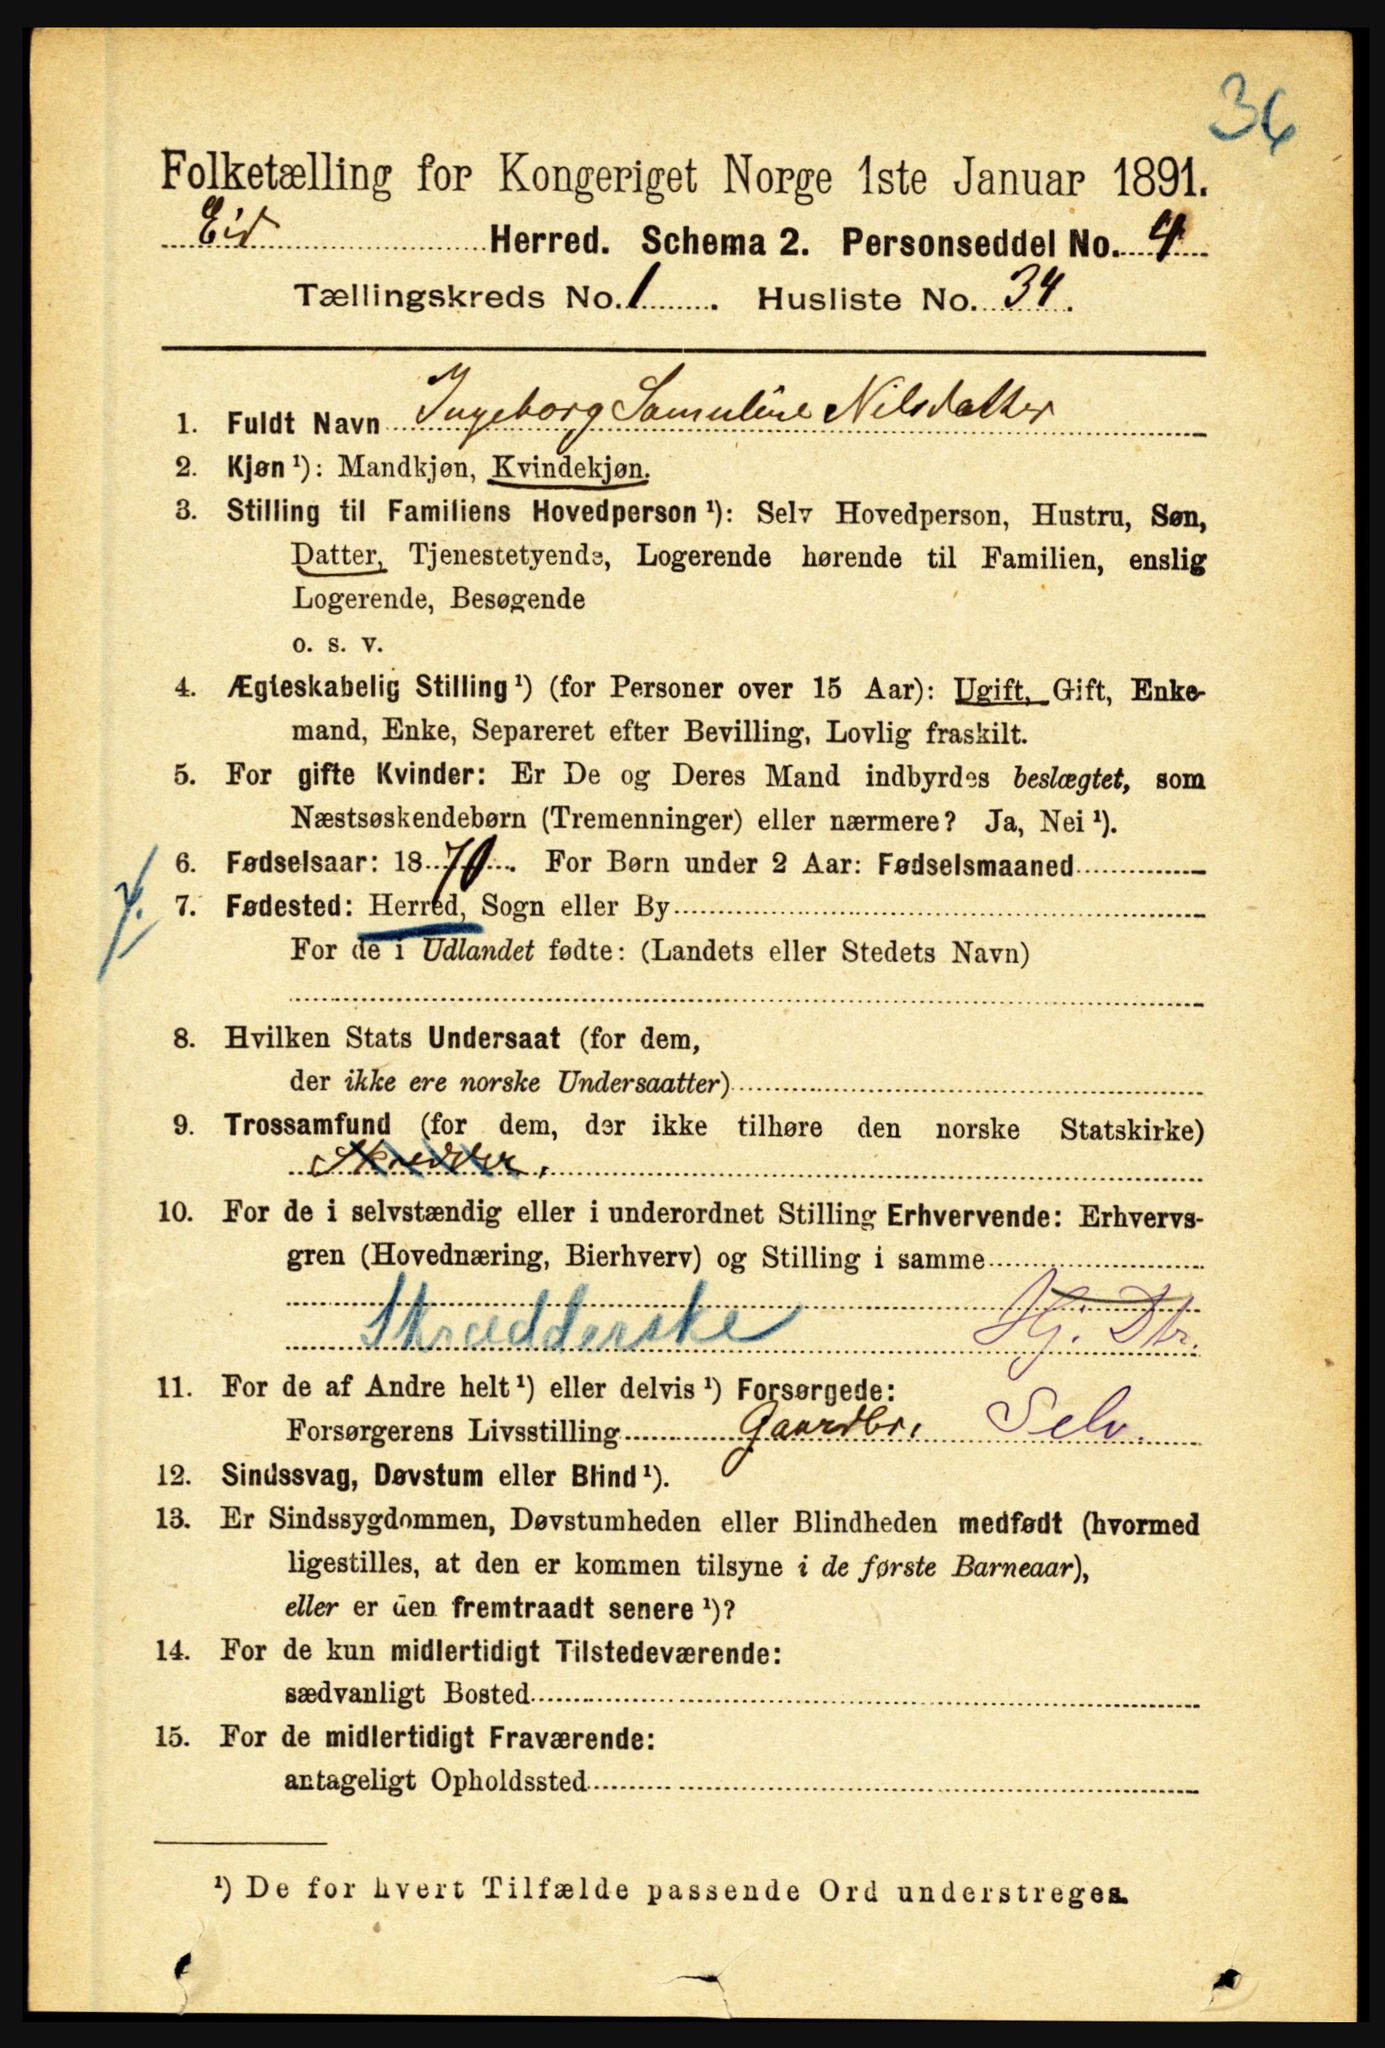 36
Folketælling for Kongeriget Norge 1ste Januar 1891.
Eid Herred. Schema 2. Personseddel No. 4
Tællingskreds No. 1. Husliste No. 34.
1. Fuldt Navn Ingeborg Samuline Nilsdatter
2. Kjøn ¹): Mandkjøn, Kvindekjøn.
3. Stilling til Familiens Hovedperson ¹): Selv Hovedperson, Hustru, Søn,
Datter, Tjenestetyende, Logerende hørende til Familien, enslig
Logerende, Besøgende
o. s. v.
4. Ægteskabelig Stilling ¹) (for Personer over 15 Aar): Ugift, Gift, Enke-
mand, Enke, Separeret efter Bevilling, Lovlig fraskilt.
5. For gifte Kvinder: Er De og Deres Mand indbyrdes beslægtet, som
Næstsøskendebørn (Tremenninger) eller nærmere? Ja, Nei ¹).
6. Fødselsaar: 1870. For Børn under 2 Aar: Fødselsmaaned
7. Fødested: Herred, Sogn eller By
For de i Udlandet fødte: (Landets eller Stedets Navn)
8. Hvilken Stats Undersaat (for dem,
der ikke ere norske Undersaatter)
9. Trossamfund (for dem, der ikke tilhøre den norske Statskirke)
Skredder.
10. For de i selvstændig eller i underordnet Stilling Erhvervende: Erhvervs-
gren (Hovednæring, Bierhverv) og Stilling i samme
Skrædderske Hj. Dtr.
11. For de af Andre helt ¹) eller delvis ¹) Forsørgede:
Forsørgerens Livsstilling Gaardbr. Selv.
12. Sindssvag, Døvstum eller Blind ¹).
13. Er Sindssygdommen, Døvstumheden eller Blindheden medfødt (hvormed
ligestilles, at den er kommen tilsyne i de første Barneaar),
eller er den fremtraadt senere ¹)?
14. For de kun midlertidigt Tilstedeværende:
sædvanligt Bosted
15. For de midlertidigt Fraværende:
antageligt Opholdssted
¹) De for hvert Tilfælde passende Ord understreges.